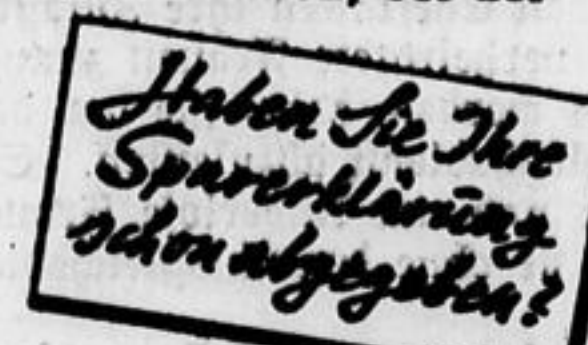 Haben Sie Ihre
Sparerklärung
schon abgegeben?